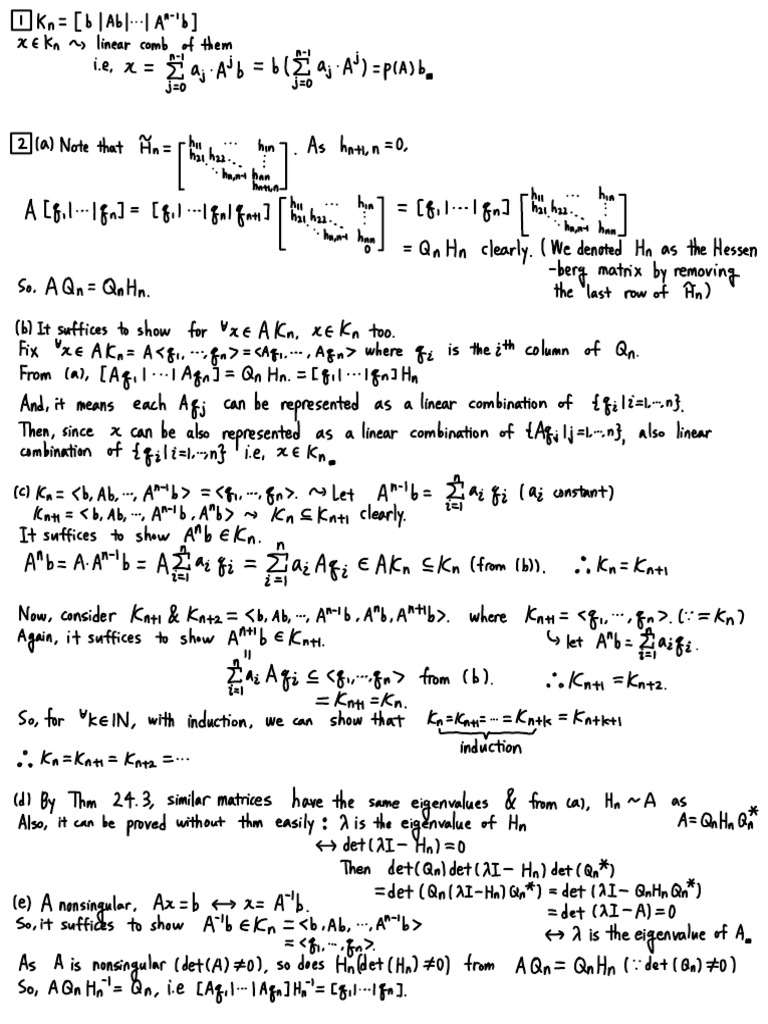 1 Kn = [b | Ab | ··· | Aⁿ⁻¹b]
x ∈ Kn ⤳ linear comb of them
i.e, x = Σ_{j=0}^{n-1} aj · Aʲb = b(Σ_{j=0}^{n-1} aj · Aʲ) = p(A)b.
2 (a) Note that H̃n = [h11 ··· h1n; h21 h22 ··. ⋮; ··. hn,n-1 hnn; hn+1,n]. As hn+1,n = 0,
A [q1|···|qn] = [q1|···|qn|qn+1] [h11 ··· h1n; h21 h22 ··. ⋮; ··. hn,n-1 hnn; 0] = [q1|···|qn] [h11 ··· h1n; h21 h22 ··. ⋮; ··. hn,n-1 hnn]
= Qn Hn clearly. (We denoted Hn as the Hessen
-berg matrix by removing
the last row of H̃n)
So, A Qn = Qn Hn.
(b) It suffices to show for ∀x ∈ A Kn, x ∈ Kn too.
Fix ∀x ∈ A Kn = A<q1, ···, qn> = <Aq1, ···, Aqn> where qi is the iᵗʰ column of Qn.
From (a), [Aq1|···|Aqn] = Qn Hn. = [q1|···|qn] Hn
And, it means each Aqj can be represented as a linear combination of {qi | i=1,···,n}.
Then, since x can be also represented as a linear combination of {Aqj | j=1,···,n}, also linear
combination of {qi | i=1,···,n} i.e, x ∈ Kn.
(c) Kn = <b, Ab, ···, Aⁿ⁻¹b> = <q1, ···, qn>. ⤳ Let Aⁿ⁻¹b = Σ_{i=1}^{n} ai qi (ai constant)
Kn+1 = <b, Ab, ···, Aⁿ⁻¹b, Aⁿb> ⤳ Kn ⊆ Kn+1 clearly.
It suffices to show Aⁿb ∈ Kn.
Aⁿb = A · Aⁿ⁻¹b = A Σ_{i=1}^{n} ai qi = Σ_{i=1}^{n} ai Aqi ∈ AKn ⊆ Kn (from (b)). ∴ Kn = Kn+1
Now, consider Kn+1 & Kn+2 = <b, Ab, ···, Aⁿ⁻¹b, Aⁿb, Aⁿ⁺¹b>. where Kn+1 = <q1, ···, qn>. (∵ = Kn)
Again, it suffices to show Aⁿ⁺¹b ∈ Kn+1. ↳ let Aⁿb = Σ_{i=1}^{n} ai qi.
=
Σ_{i=1}^{n} ai A qi ⊆ <q1, ···, qn> from (b). ∴ Kn+1 = Kn+2.
= Kn+1 = Kn.
So, for ∀k ∈ ℕ, with induction, we can show that Kn = Kn+1 = ··· = Kn+k = Kn+k+1
induction
∴ Kn = Kn+1 = Kn+2 = ···
(d) By Thm 24.3, similar matrices have the same eigenvalues & from (a), Hn ~ A as
A = Qn Hn Qn*
Also, it can be proved without thm easily : λ is the eigenvalue of Hn
↔ det(λI - Hn) = 0
Then det(Qn) det(λI - Hn) det(Qn*)
= det(Qn(λI - Hn)Qn*) = det(λI - QnHnQn*)
= det(λI - A) = 0
↔ λ is the eigenvalue of A.
(e) A nonsingular, Ax = b ↔ x = A⁻¹b.
So, it suffices to show A⁻¹b ∈ Kn = <b, Ab, ···, Aⁿ⁻¹b>
= <q1, ···, qn>.
As A is nonsingular (det(A) ≠ 0), so does Hn (det(Hn) ≠ 0) from A Qn = Qn Hn (∵ det(Qn) ≠ 0)
So, A Qn Hn⁻¹ = Qn, i.e [Aq1|···|Aqn] Hn⁻¹ = [q1|···|qn].